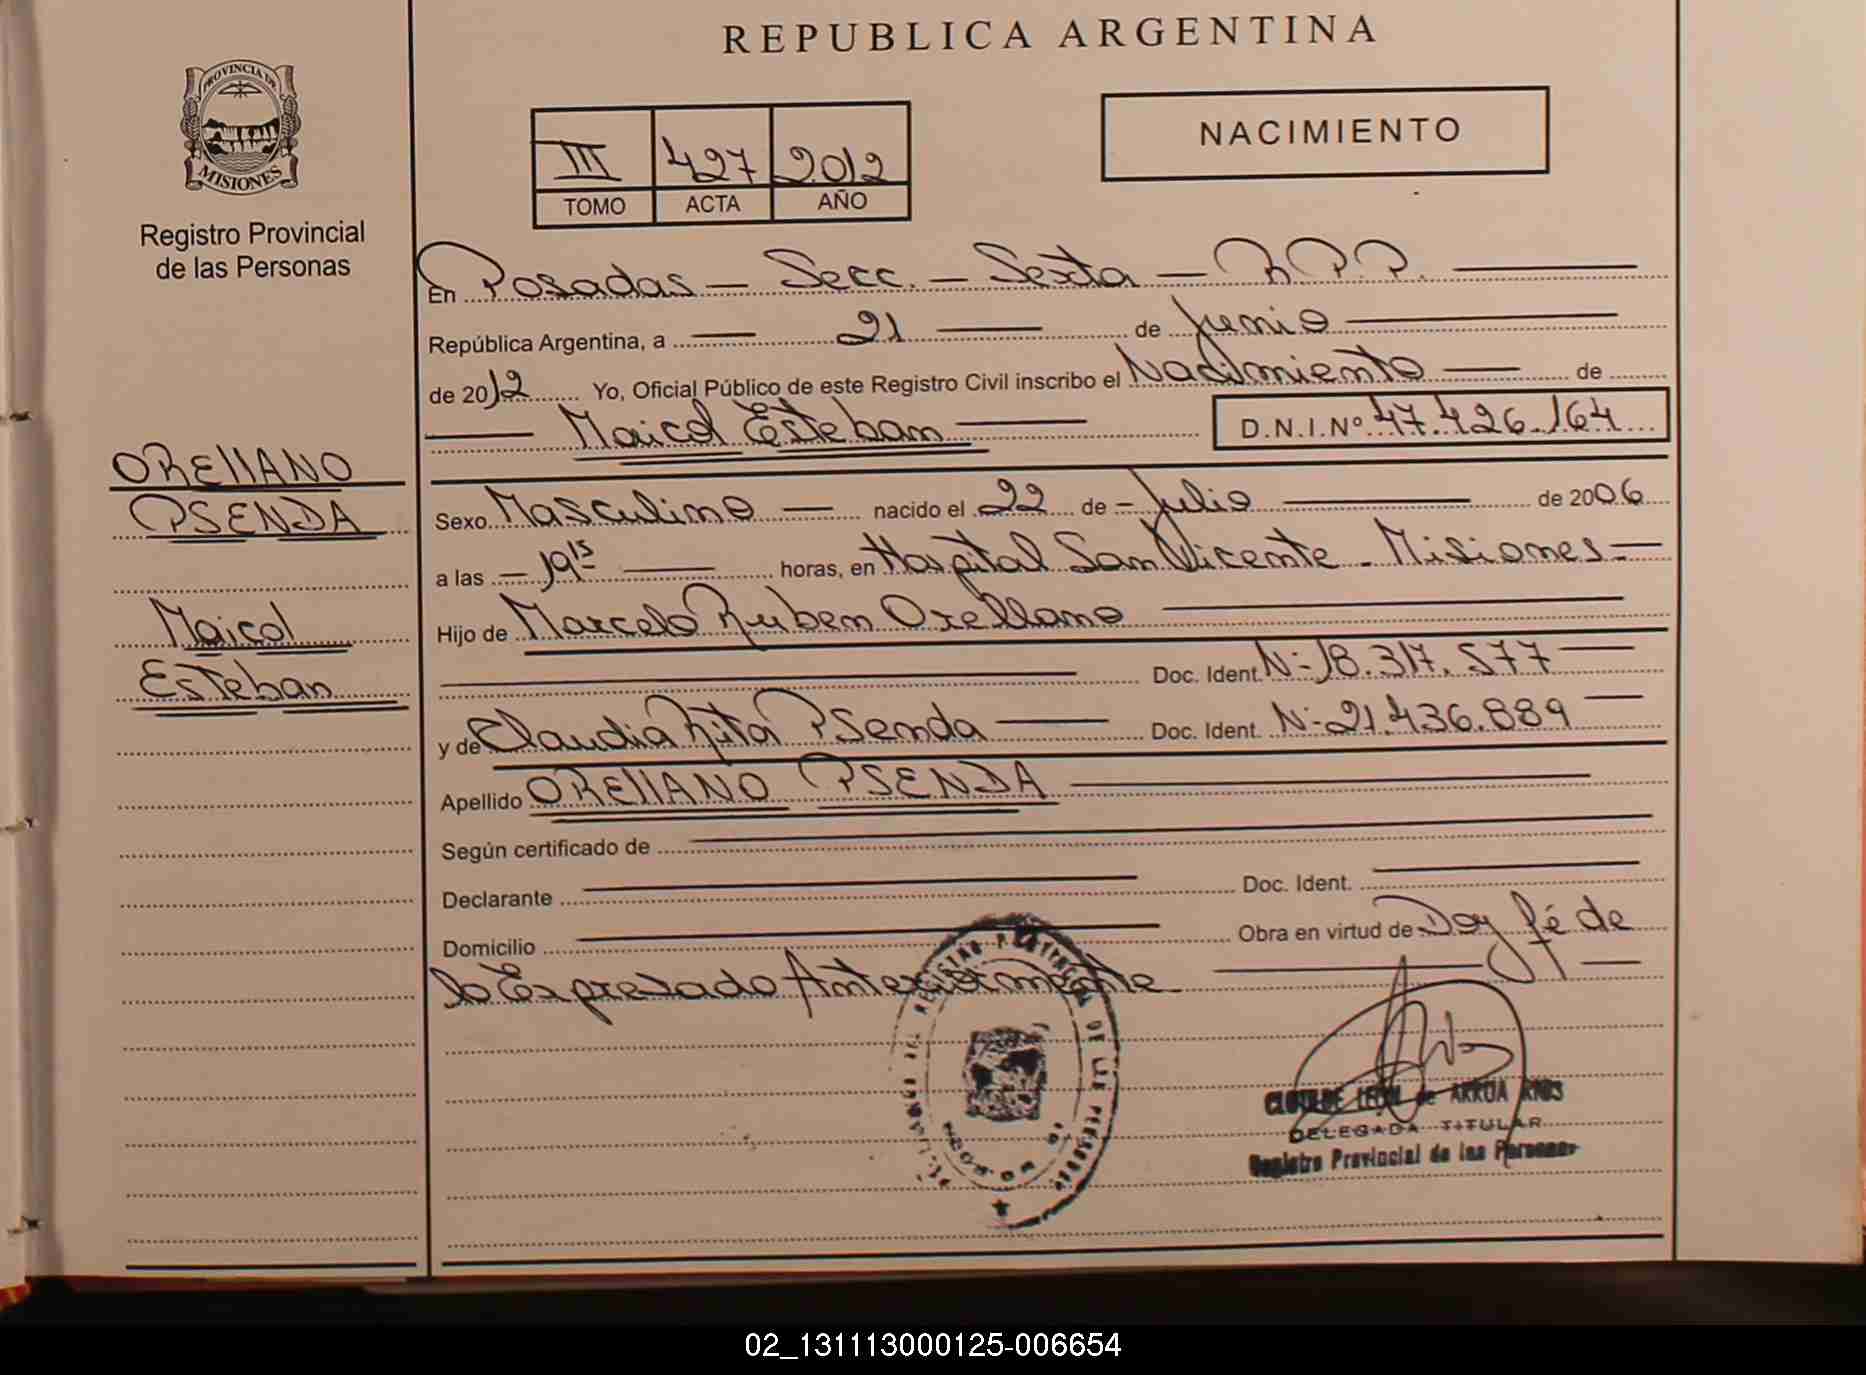 REPUBLICA ARGENTINA
PROVINCIA DE
MISIONES
Registro Provincial
de las Personas
III 427 2012
TOMO ACTA AÑO
NACIMIENTO
En Posadas – Secc. – Sexta – R.P.P.
República Argentina, a — 21 — de Junio
de 2012 Yo, Oficial Público de este Registro Civil inscribo el Nacimiento — de
— Maicol Esteban — D.N.I.Nº 47.426.164
ORELLANO
PSENDA
Maicol
Esteban
Sexo Masculino — nacido el 22 de – Julio — de 2006
a las – 19 15 — horas, en Hospital San Vicente – Misiones –
Hijo de Marcelo Ruben Orellano
Doc. Ident. Nº 18.317.577
y de Claudia Rita Psenda — Doc. Ident. Nº 21.436.889
Apellido ORELLANO PSENDA
Según certificado de
Declarante Doc. Ident.
Domicilio Obra en virtud de Doy fé de
lo Expresado Anteriormente
REGISTRO PROVINCIAL DE LAS PERSONAS
CLOTILDE LEON de ARRUA RIOS
DELEGADA TITULAR
Registro Provincial de las Personas
02_131113000125-006654